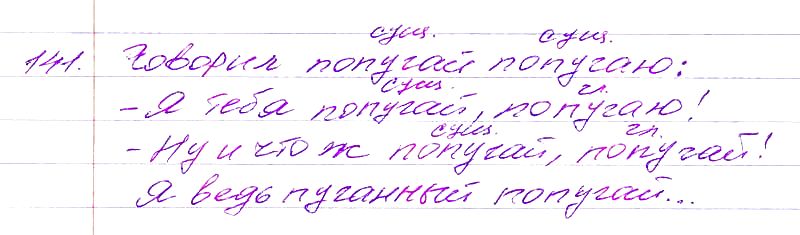 сущ. сущ.
141. Говорил попугай попугаю:
сущ. гл.
- Я тебя попугай, попугаю!
сущ. гл.
- Ну и что ж попугай, попугай!
Я ведь пуганный попугай...